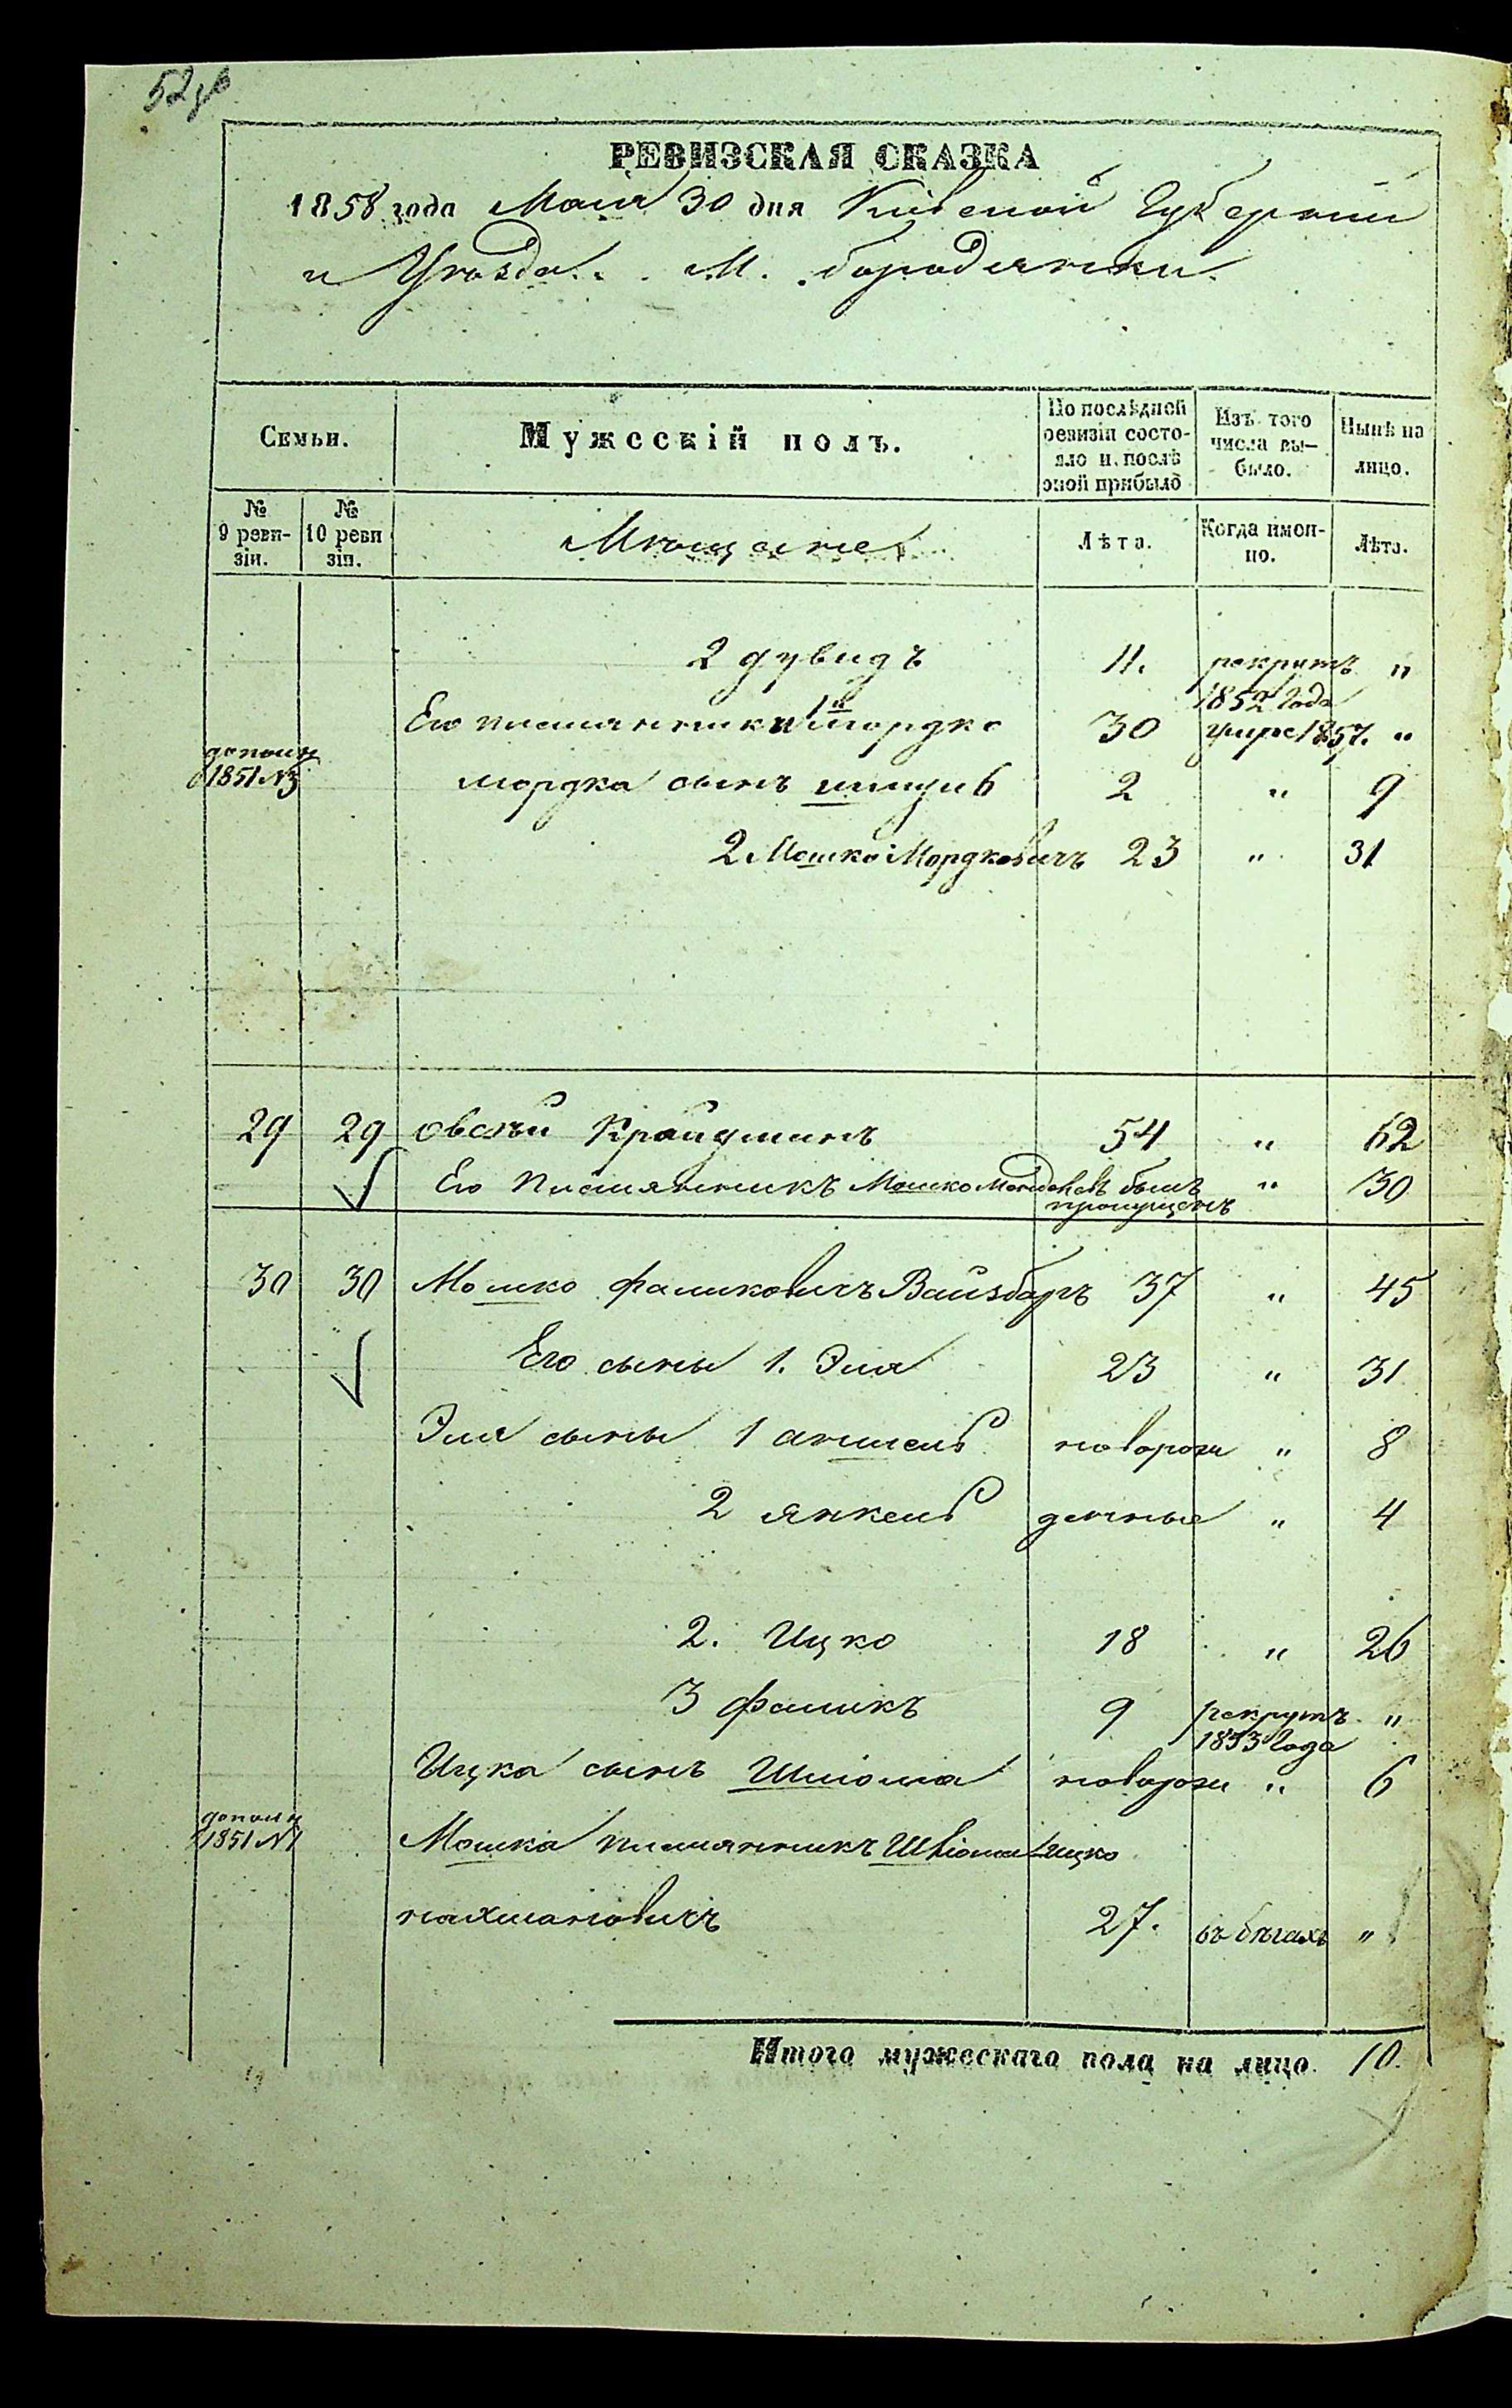 РЕВИЗСКАЯ СКАЗКА
1858 года Мая 30 дня Кіевской Губерніи
и Уѣзда.. М. бородянки
Семьи.
Мужескій полъ.
По послѣдней ревизіи состояло и послѣ оной прибыло
Изъ того числа выбыло.
Нынѣ на лицо.
№ 9 ревизіи.
№ 10 ревизіи.
Мѣщане
Лѣта.
Когда имонно.
Лѣта.
2 дувидъ 11. рекрутъ "
1852 года
Его племянники 1й мордко 30 умре 1857. "
дополн
1851 №3 мордка сынъ 2 " 9
2 Мошко Мордковичъ 23 " 31
29 29 овсѣй 54 " 62
Его племянникъ Мошко былъ " 30
пропущенъ
30 30 Мошко фаликовичъ Вайзбаръ 37 " 45
Его сыны 1. Эля 23 " 31
Эля сыны 1 аншель новорож " 8
2 янкель денные " 4
2. Ицко 18 " 26
3 фаликъ 9 рекрутъ "
1853 года
Ицка сынъ Шліома новорож " 6
дополн
1851 №1 Мошка племянникъ Шліома Ицко
нахмановичъ 27. въ бѣгахъ "
Итого мужескаго пола на лицо. 10.